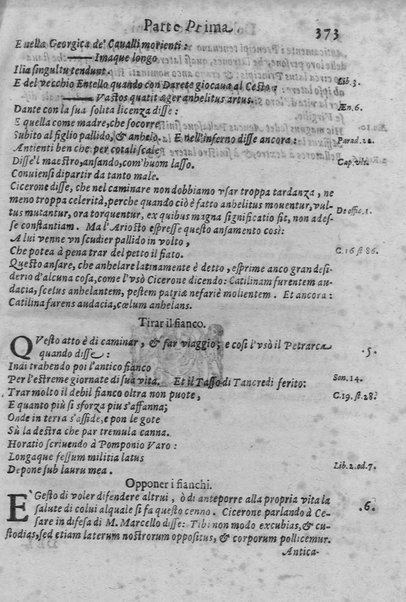 Parte Prima. 373
E nella Georgica de' Caualli morienti:
—— Imaque longo
Ilia singultu tendunt. Lib.3.
E del vecchio Entello quando con Darete giocaua al Cesto;
—— Vastos quatit æger anhelitus artus. Æn.6.
Dante con la sua solita licenza disse:
E quella come madre, che socorre
Subito al figlio pallido, & anhelo. E nell'inferno disse ancora: Parad.22.
Antienti ben che per cotali scale
Disse'l maestro, ansando, com'huom lasso. Cap. vlt.
Conuiensi dipartir da tanto male.
Cicerone disse, che nel caminare non dobbiamo vsar troppa tardanza, ne
meno troppa celerità, perche quando ciò è fatto anhelitus mouentur, vul-
tus mutantur, ora torquentur, ex quibus magna significatio fit, non ades- De offic.1.
se constantiam. Ma l'Ariosto espresse questo ansamento così:
A lui venne vn scudier pallido in volto,
Che potea à pena trar del petto il fiato. C.16 st 86.
Questo ansare, che anhelare latinamente è detto, esprime anco gran desi-
derio d'alcuna cosa, come l'vsò Cicerone dicendo: Catilinam furentem au-
dacia, scelus anhelantem, pestem patriæ nefariè molientem. Et ancora:
Catilina furens audacia, cœlum anhelans.
Tirar il fianco.
QVesto atto è di caminar, & far viaggio; e così l'vsò il Petrarca .5.
quando disse:
Indi trahendo poi l'antico fianco
Per l'estreme giornate di sua vita. Et il Tasso di Tancredi ferito: Son.14.
Trar molto il debil fianco oltra non puote, C.19. st.28.
E quanto più si sforza piu s'affanna;
Onde in terra s'asside, e pon le gote
Sù la destra che par tremula canna.
Horatio scriuendo à Pomponio Varo:
Longaque fessum militia latus
Depone sub lauru mea. Lib.2.od.7.
Opponer i fianchi.
E' Gesto di voler difendere altrui, ò di anteporre alla propria vita la .6.
salute di colui alquale si fa questo cenno. Cicerone parlando à Ce-
sare in difesa di M. Marcello disse: Tibi non modo excubias, & cu-
stodias, sed etiam laterum nostrorum oppositus, & corporum pollicemur.
Antica-